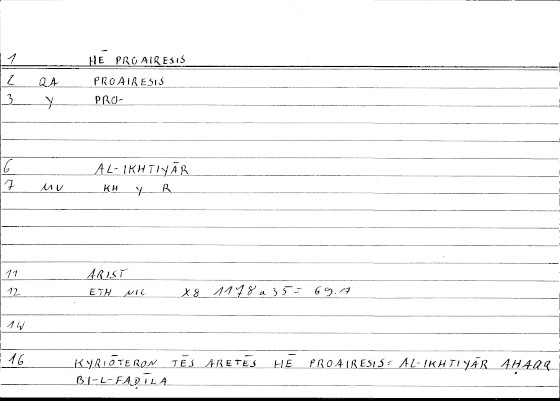 1 HĒ PROAIRESIS
2 QA PROAIRESIS
3 Y PRO-
6 AL-IKHTIYĀR
7 MU KH Y R
11 ARIST
12 ETH NIC X8 1178a35= 69.1
14
16 KYRIŌTERON TĒS ARETĒS HĒ PROAIRESIS= AL-IKHTIYĀR AḤAQQ
BI-L-FAḌĪLA